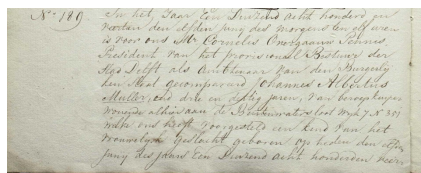 No 189 In het Jaar Een Duizend acht honderd en
veertien den elfden Juny des morgens ten elf uren
is voor ons Mr Cornelis Overgaauw Pennis,
President van het provisioneel Bestuur der
Stad Delft als Amtenaar van den Burgerly
ken Staat gecompareerd Johannes Albertus
Muller, oud drie en vyftig jaren, van beroep
wonende alhier aan de Binnenwatersloot Wyk 7 No 301
welke ons heeft voorgesteld een kind van het
vrouwelyk geslacht geboren op heden den elfden
juny des jaars Een Duizend acht honderden veer